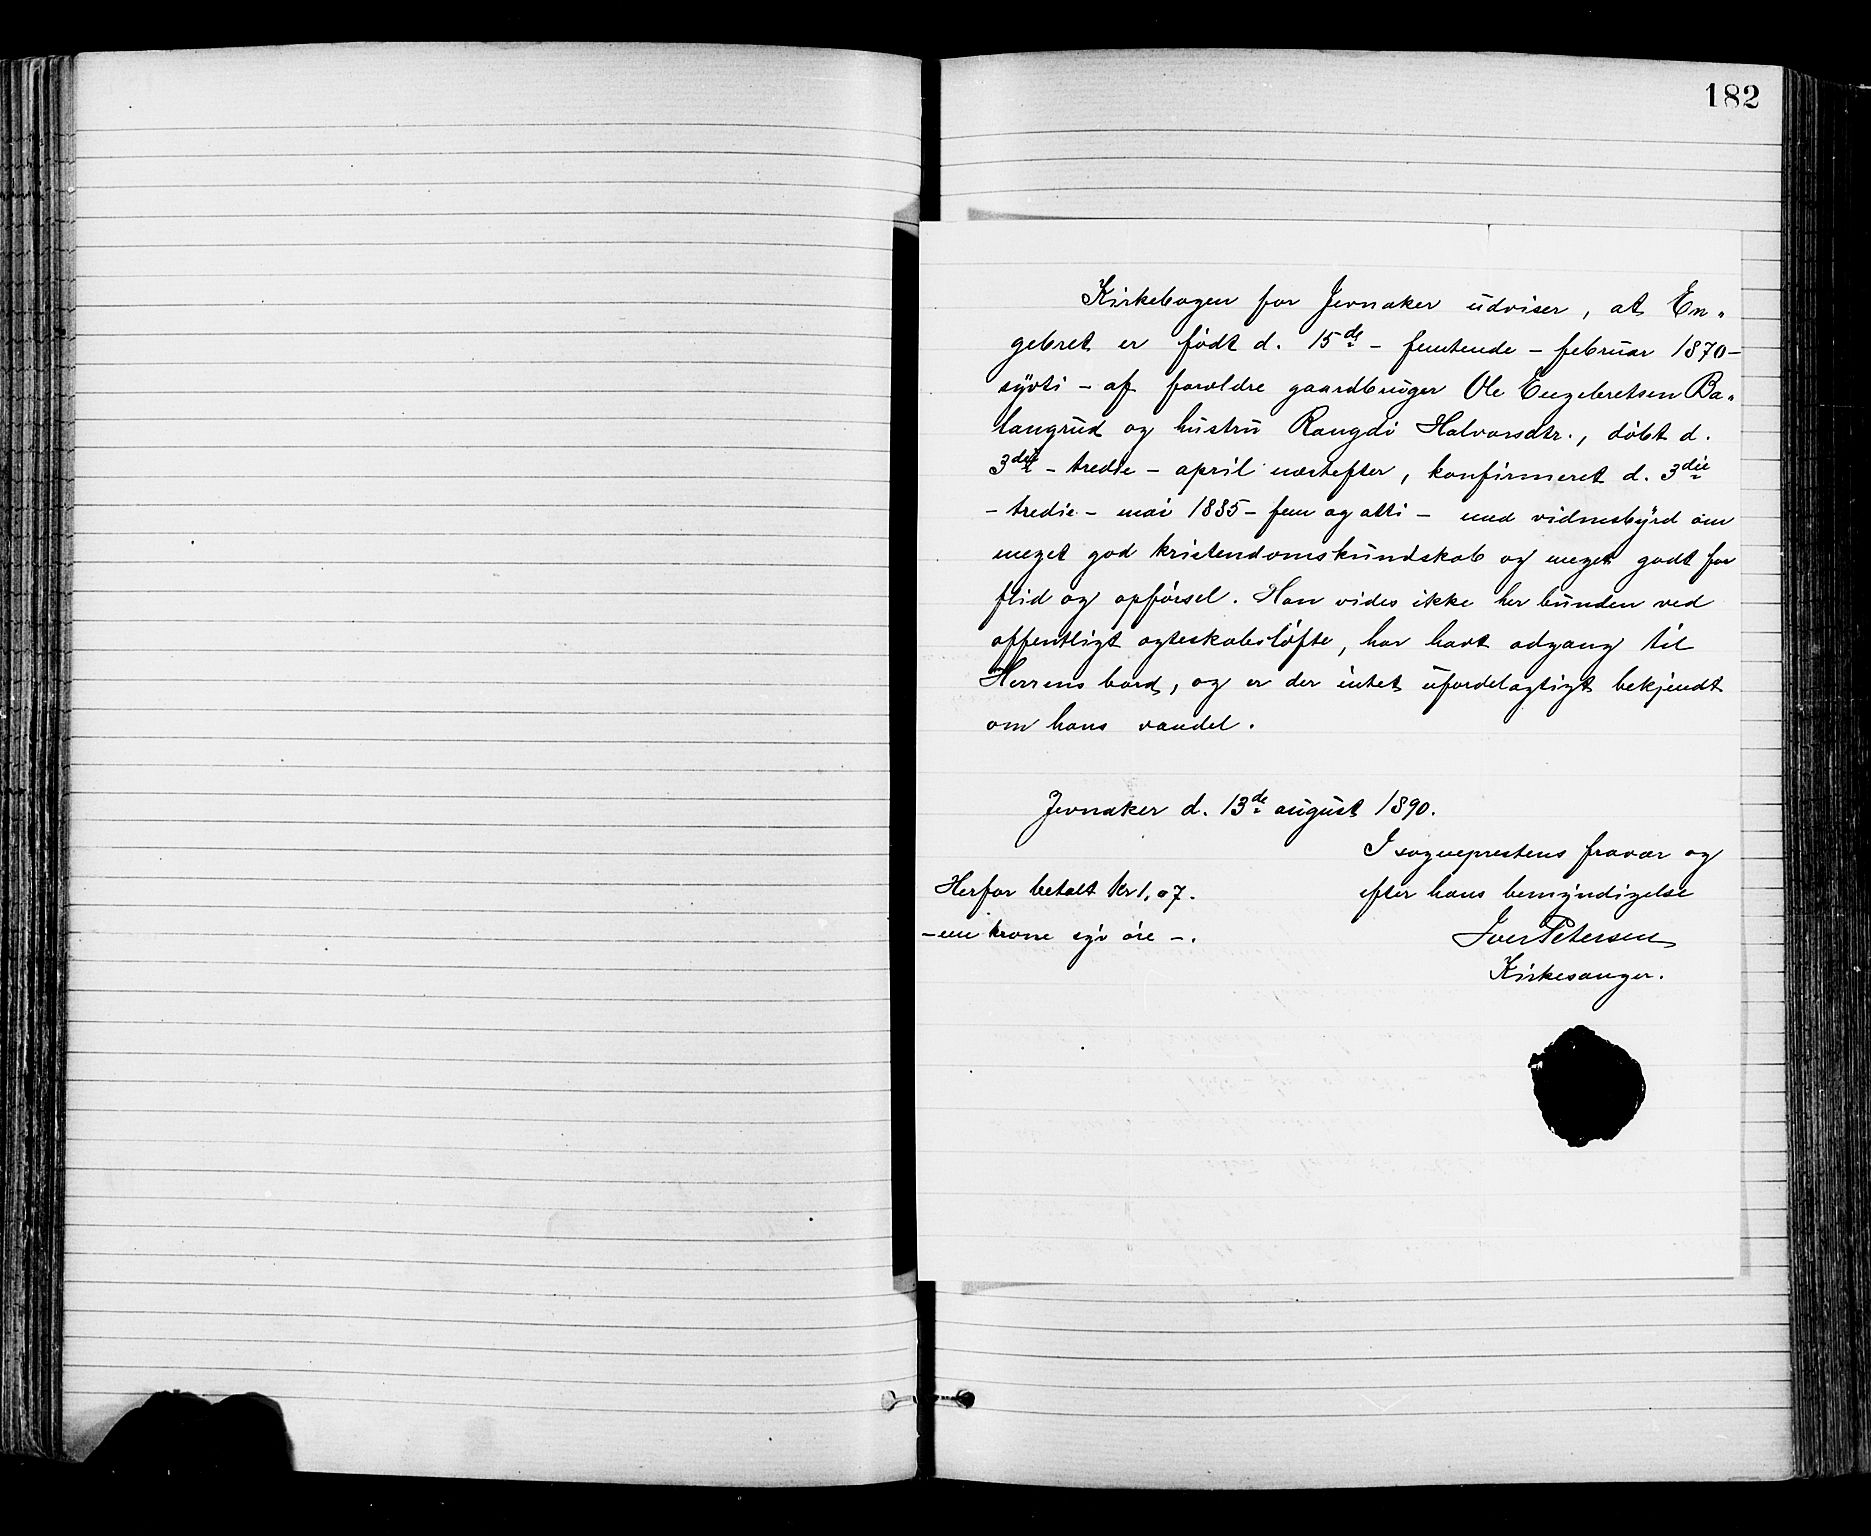 182
Kirkebogen for Jevnaker udviser, at En-
gebret er født d. 15de - femtende - februar 1870 -
sytti - af forældre gaardbruger Ole Engebretsen Ba-
langrud og hustru Rangdi Halvorsdtr., døbt d.
3die - tredie - april næstefter, konfirmeret d. 3die
- tredie - mai 1885 - fem og otti - med vidnesbyrd om
meget god kristendomskundskab og meget godt for
flid og opførsel. Han vides ikke her bunden ved
offentligt ægteskabsløfte, har havt adgang til
Herrens bord, og er der intet ufordelagtigt bekjendt
om hans vandel.
Jevnaker d. 13de august 1890.
I sogneprestens fravær og
efter hans bemyndigelse
Iver Petersen
Kirkesanger.
Herfor betalt kr 1,07.
- en krone syv øre -.